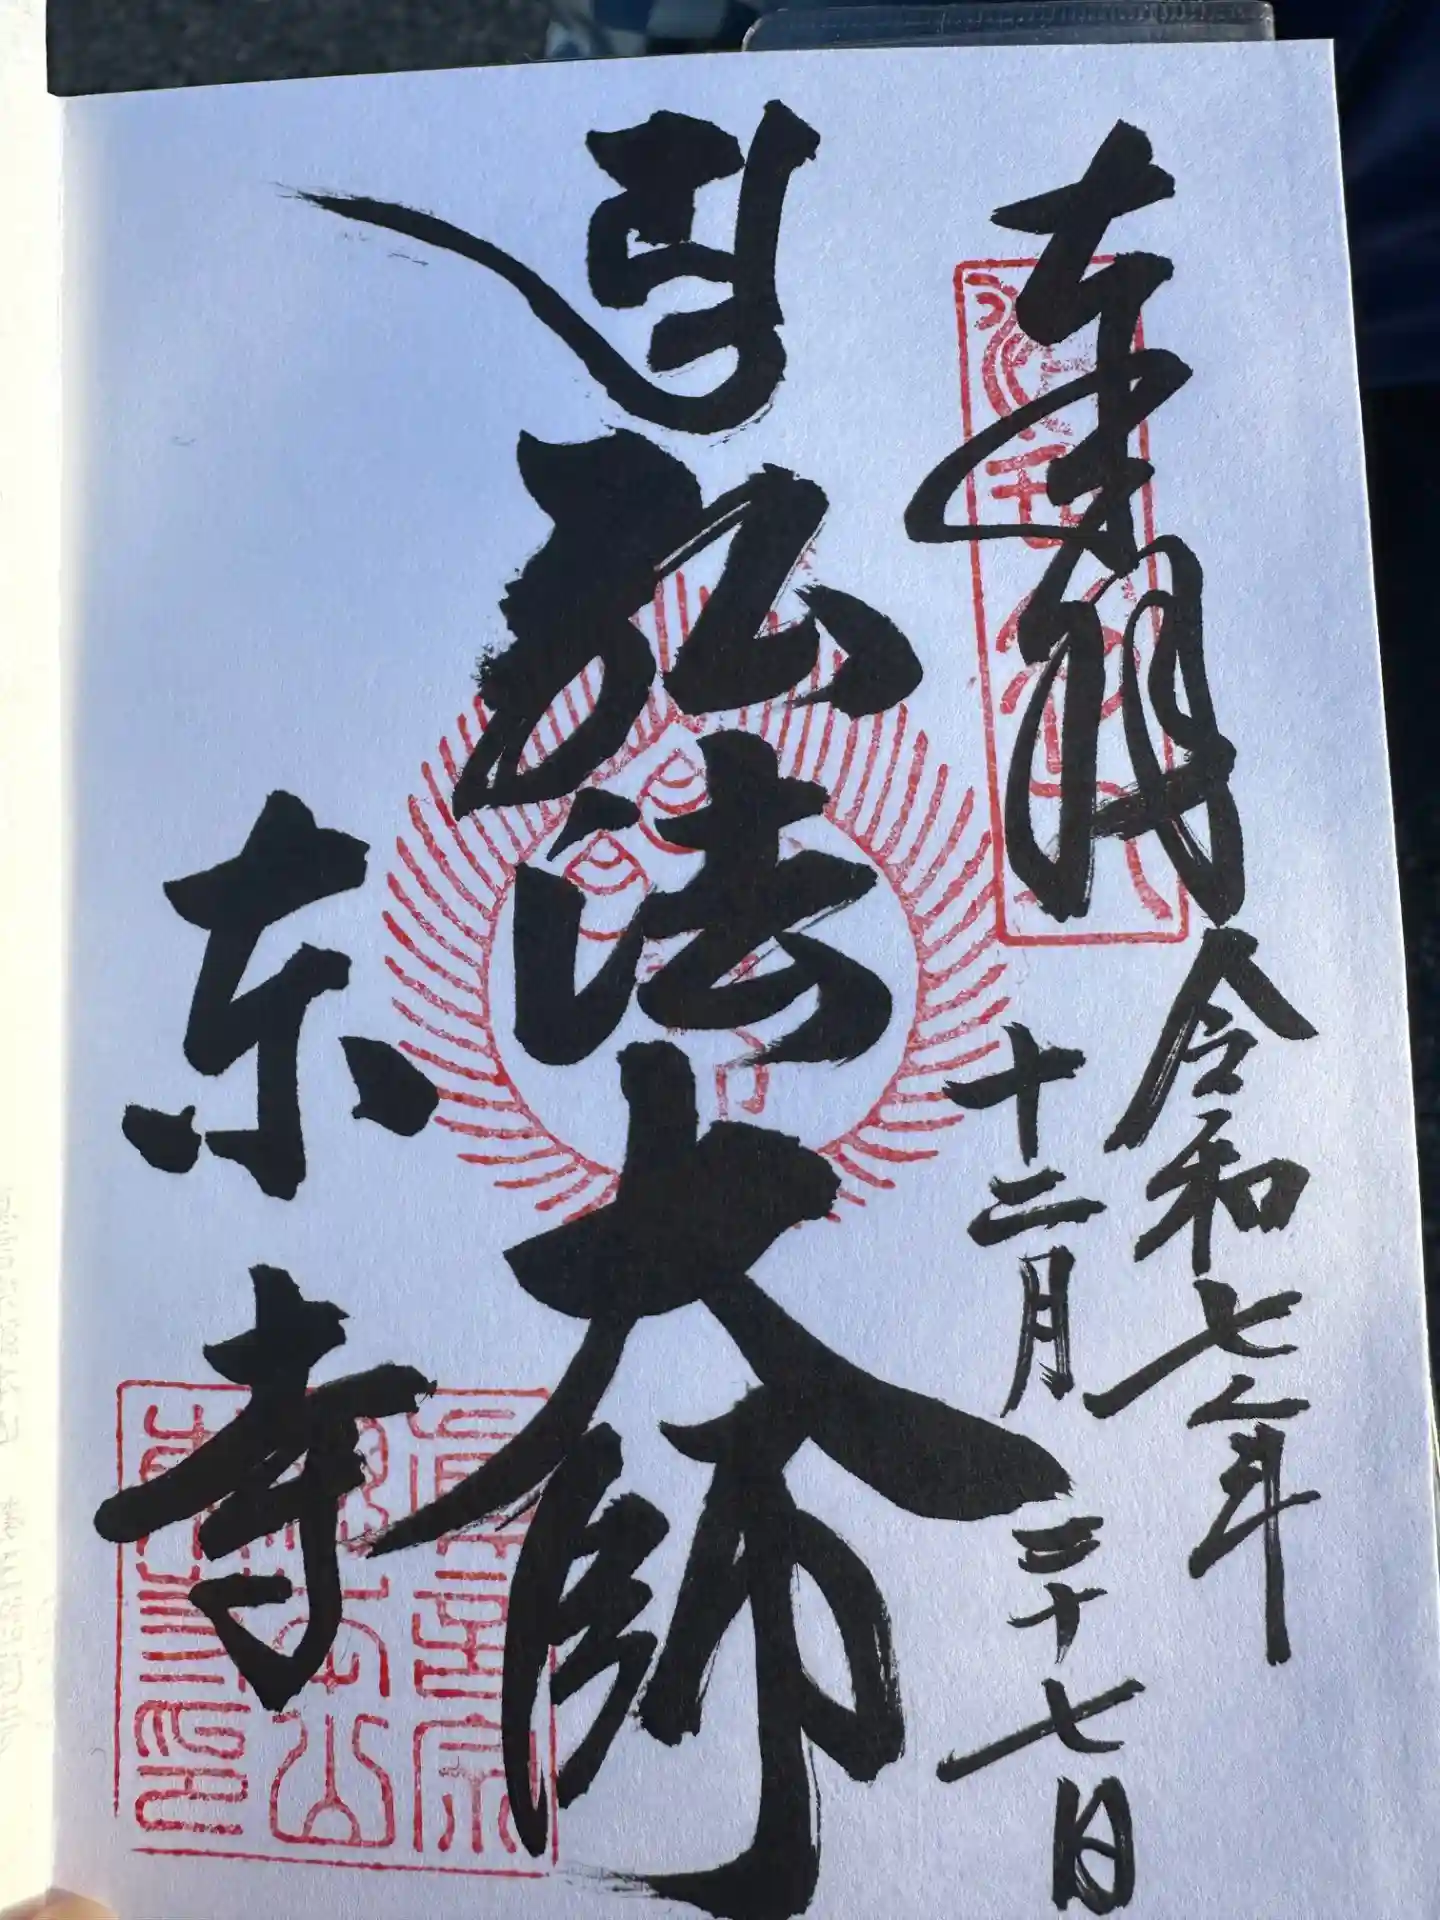 奉拝
令和七年
十二月二十七日
弘法大師
東寺